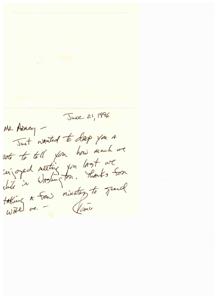 June 21, 1996
Mr. Armey —
Just wanted to drop you a
note to tell you how much we
enjoyed meeting you last we
while in Washington. Thanks for
taking a few minutes to
with us —